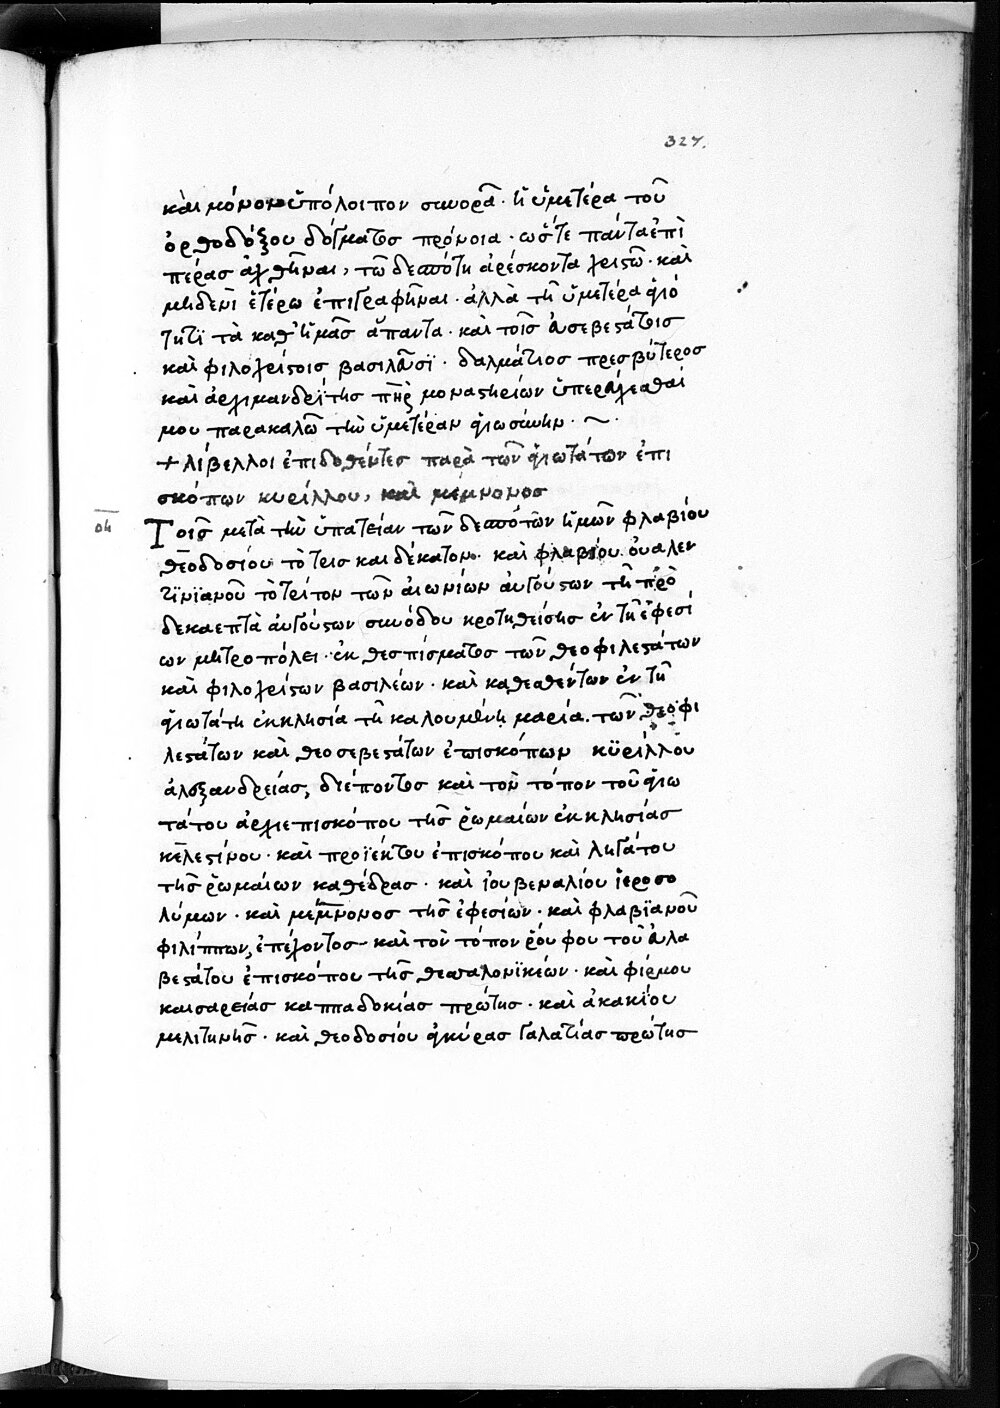 327.
καὶ μόνον ὑπόλοιπον συνορᾶ · ἡ ὑμετέρα τοῦ
ὀρθοδόξου δόγματος πρόνοια · ὥστε πάντα ἐπὶ
πέρας ἀχθῆναι, τῶ δεσπότη ἀρέσκοντα χριστῶ · καὶ
μηδενὶ ἑτέρω ἐπιγραφῆναι · ἀλλὰ τῆ ὑμετέρα ἁγιό
τητϊ τὰ καθ' ἡμᾶς ἅπαντα · καὶ τοῖς εὐσεβεστάτοις
καὶ φιλοχρίστοις βασιλεῦσϊ · δαλμάτιος πρεσβύτερος
καὶ ἀρχιμανδρίτης πῆρ μοναστηρίων ὑπερεύχεσθαί
μου παρακαλῶ τὴν ὑμετέραν ἁγιωσύνην · ~ ·
+ λίβελλοι ἐπιδοθέντες παρὰ τῶν ἁγιωτάτων ἐπι
σκόπων κυρίλλου, καὶ μέμνονος
οη
Τοῖς μετὰ τὴν ὑπατείαν τῶν δεσποτῶν ἡμῶν φλαβίου
θεοδοσίου τὸ τρισκαιδέκατον · καὶ φλαβίου οὐαλεν
τινϊανοῦ τὸ τρίτον τῶν αἰωνίων αὐγούστων τῆ πρὸ
δεκαεπτὰ αὐγούστων συνόδου κροτηθείσης ἐν τῆ ἐφεσί
ων μητροπόλει · ἐκ θεσπίσματος τῶν θεοφιλεστάτων
καὶ φιλοχρίστων βασιλέων · καὶ καθεσθέντων ἐν τῆ
ἁγιωτάτη ἐκκλησία τῆ καλουμένη μαρία · τῶν θεοφι
λεστάτων καὶ θεοσεβεστάτων ἐπισκόπων κϋρίλλου
ἀλεξανδρείας, διέποντος καὶ τὸν τόπον τοῦ ἁγιω
τάτου ἀρχιεπισκόπου τῆς ῥωμαίων ἐκκλησίας
κελεστίνου · καὶ προϊέκτου ἐπισκόπου καὶ ληγάτου
τῆς ῥωμαίων καθέδρας · καὶ ἰουβεναλίου ἱεροσο
λύμων · καὶ μέμνονος τῆς ἐφεσίων · καὶ φλαβϊανοῦ
φιλίππων, ἐπέχοντος καὶ τὸν τόπον ῥούφου τοῦ εὐλα
βεστάτου ἐπισκόπου τῆς θεσσαλονϊκέων · καὶ φίρμου
καισαρείας καππαδοκίας πρώτης · καὶ ἀκακϊου
μελιτηνῆς · καὶ θεοδοσίου ἀγκύρας γαλατίας πρώτης